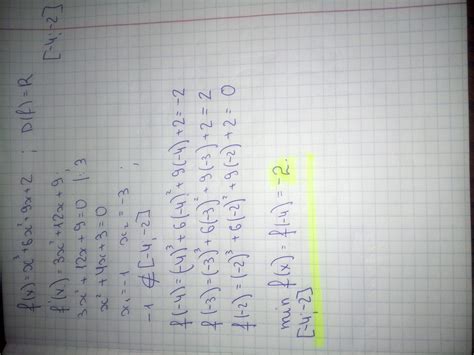 f(x)=x³+6x²+9x+2 ; D(f)=R [-4;-2]
f'(x)=3x²+12x+9;
3x²+12x+9=0 |:3
x²+4x+3=0
x₁=-1 x₂=-3 ;
-1 ∉ [-4;-2]
f(-4)=(-4)³+6(-4)²+9(-4)+2=-2
f(-3)=(-3)³+6(-3)²+9(-3)+2=2
f(-2)=(-2)³+6(-2)²+9(-2)+2=0
min f(x)=f(-4)=-2.
[-4;-2]